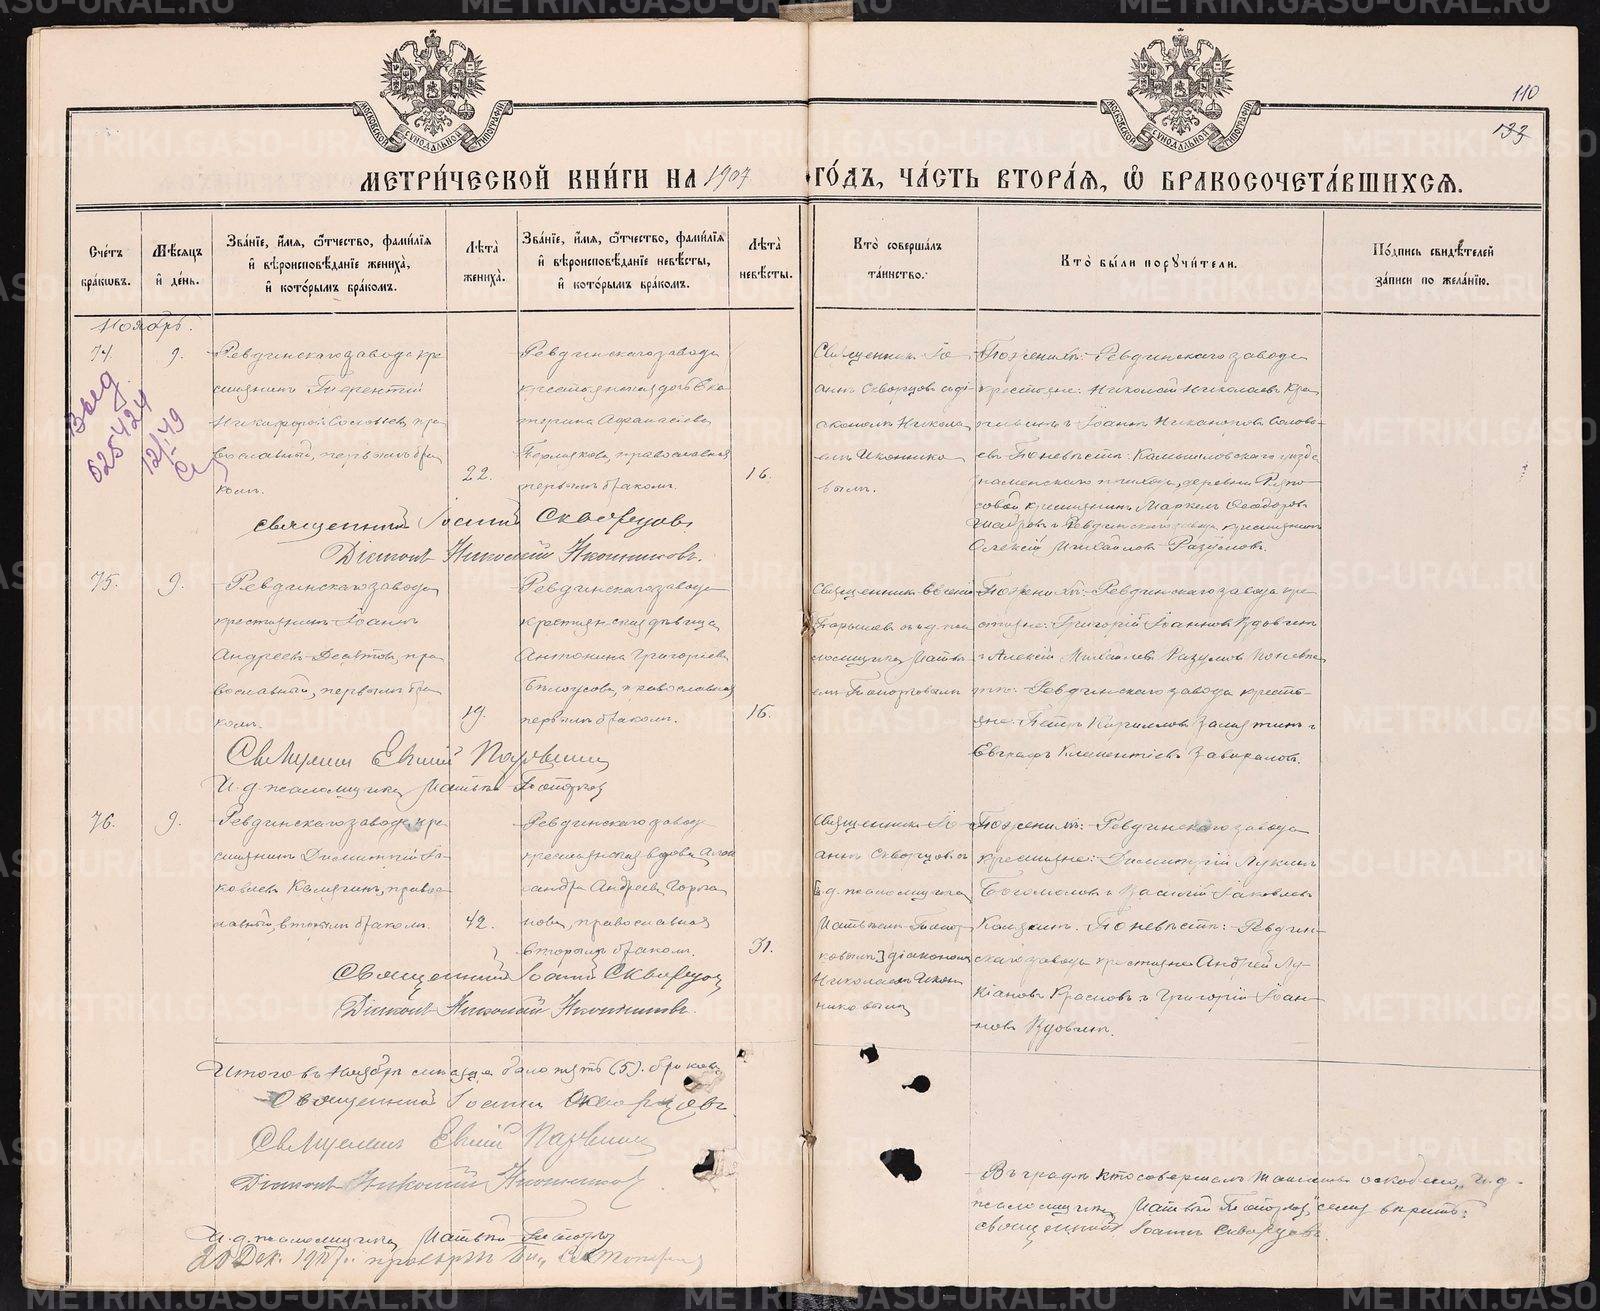 110
133
МЕТРИ́ЧЕСКОЙ КНИ́ГИ НА 1907 ГО́ДЪ, ЧА́СТЬ ВТОРА́Я, Ѡ҆ БРАКОСОЧЕТА́ВШИХСЯ.
Сче́тъ бра́ковъ.
Мѣ́сяцъ и҆ де́нь.
Зва́нїе, и҆́мя, ѻ҆́тчество, фами́лїя и҆ вѣроисповѣ́данїе жениха̀, и҆ кото́рымъ бра́комъ.
Лѣ́та̀ жениха̀.
Зва́нїе, и҆́мя, ѻ҆́тчество, фами́лїя и҆ вѣроисповѣ́данїе невѣ́сты, и҆ кото́рымъ бра́комъ.
Лѣ́та̀ невѣ́сты.
Кто̀ соверша́лъ та́инство.
Кто̀ бы́ли поручи́тели.
По́дпись свидѣ́телей за́писи по жела́нїю.
Ноябрь.
74.
9.
Ревдинскаго завода кре
стьянинъ Терентій
Никифоровъ Соловьевъ, пра
вославный, первымъ бра
комъ.
22.
Ревдинскаго завода
крестьянская дочь Ека
терина Афанасіева
православная
первымъ бракомъ.
16.
Священникъ Іо
аннъ Скворцовъ съ ді
акономъ Никола
емъ Иконнико
вымъ.
По женихѣ: Ревдинскаго завода
крестьяне: Николай Николаевъ
и Іоаннъ Никаноровъ Солов
евъ. По невѣстѣ: Камышловскаго уѣзда
Знаменскаго прихода, деревни
крестьянинъ Маркелъ Ѳеодоровъ
и Ревдинскаго завода крестьянинъ
Алексій Михайловъ Разумовъ.
Священникъ Іоаннъ Скворцовъ
Діаконъ Николай Иконниковъ.
Выд
025424
12/I-49
75.
9.
Ревдинскаго завода
крестьянинъ Іоаннъ
Андреевъ Десятовъ, пра
вославный, первымъ бра
комъ.
19.
Ревдинскаго завода
крестьянская дѣвица
Антонина Григоріева
Бѣлоусова, православная
первымъ бракомъ.
16.
Священникъ Евгеній
съ и. д. пса
ломщика Матвѣ
емъ Топорковымъ
По женихѣ: Ревдинскаго завода кре
стьяне: Григорій Іоанновъ Вдовинъ
и Алексій Михайловъ Разумовъ. По невѣс
тѣ: Ревдинскаго завода крестья
яне: Петръ Кирилловъ и
Евграфъ Климентіевъ
Священникъ Евгеній
И. д. псаломщика Матвѣй Топорковъ
76.
9.
Ревдинскаго завода кре
стьянинъ Димитрій Іа
ковлевъ Калягинъ, правос
лавный, вторымъ бракомъ.
42.
Ревдинскаго завода
крестьянская вдова Алек
сандра Андреева
православная
вторымъ бракомъ.
31.
Священникъ Іо
аннъ Скворцовъ съ
[и. д. псаломщика
Матвѣемъ Топор
ковымъ] діакономъ
Николаемъ Икон
никовымъ
По женихѣ: Ревдинскаго завода
крестьяне: Димитрій Лукинъ
Богомоловъ и Василій Іаковлевъ
Калягинъ. По невѣстѣ: Ревдин
скаго завода крестьяне Андрей Лу
кіановъ Красновъ и Григорій Іоан
новъ Вдовинъ.
Священникъ Іоаннъ Скворцовъ
Діаконъ Николай Иконниковъ.
Итого въ ноябрѣ мѣсяцѣ было пять (5) браковъ
Священникъ Іоаннъ Скворцовъ
Священникъ Евгеній
Діаконъ Николай Иконниковъ
И. д. псаломщика Матвѣй Топорковъ
20 Дек. 1907 г.
Въ графѣ кто совершалъ таинство оскоблено „и. д.
псаломщика Матвѣй Топорковъ" сему вѣрить:
священникъ Іоаннъ Скворцовъ.
METRIKI.GASO-URAL.RU